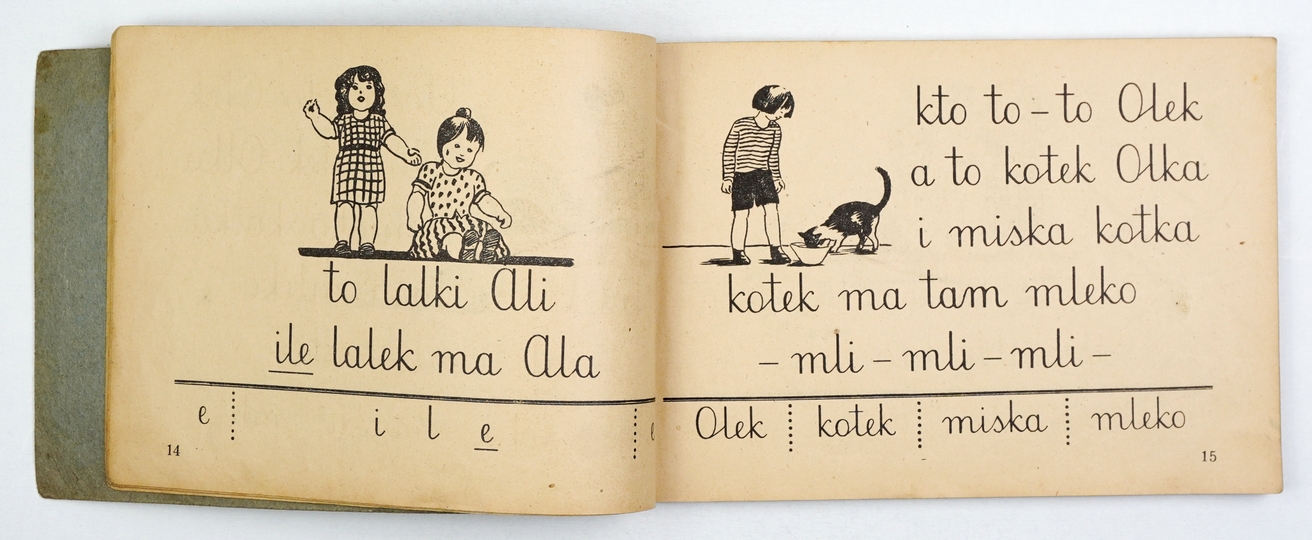 to lalki Ali
ile lalek ma Ala
e i l e
14
kto to – to Olek
a to kotek Olka
i miska kotka
kotek ma tam mleko
– mli – mli – mli –
e Olek kotek miska mleko
15